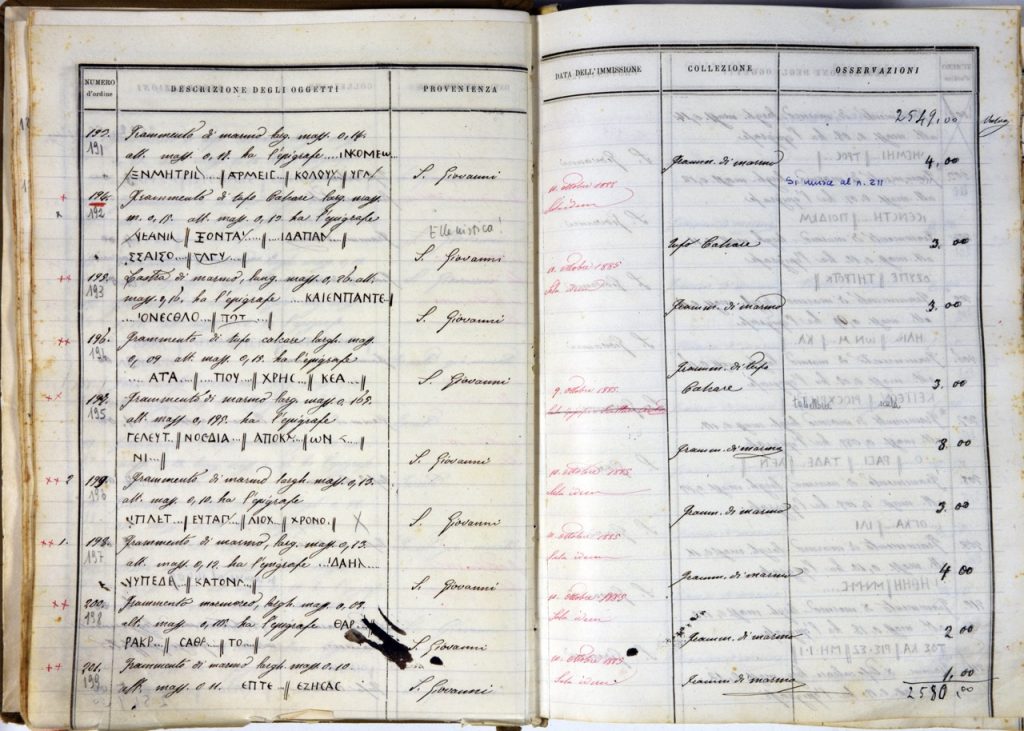 NUMERO
d'ordine
DESCRIZIONE DEGLI OGGETTI
PROVENIENZA
DATA DELL'IMMISSIONE
COLLEZIONE
OSSERVAZIONI
2549,00
191
Frammento di marmo larg. mass. 0,14.
alt. mass. 0,18. ha l'epigrafe ....ΙΝΚΟΜΕω
ΞΝΜΗΤΡΙΣ || ΑΡΜΕΙΣ || ΚΟΛΟΥΧ || ΥΓΛ
S. Giovanni
11. ottobre 1885
Sala idem
Framm. di marmo
4,00
Si unisce al n. 211
192
Frammento di tufo Calcare larg. mass.
m. 0,18. alt. mass. 0,19. ha l'epigrafe
ΝΕΑΝΙΚ || ΞΟΝΤΑΥ... ΙΔΑΠΑΝ
ΣΣΑΙΣΟ
Ellenistica!
S. Giovanni
11. ottobre 1885
Sala idem
tufo Calcare
3,00
193
di marmo, larg. mass. 0,26. alt.
mass. 0,16. ha l'epigrafe ....ΚΑΙΕΝΠΑΝΤΕ
....ΙΟΝΕΣΘΛΟ || ΠΟΤ....
S. Giovanni
Framm. di marmo
3,00
196.
Frammento di tufo calcare largh. mass.
0,09 alt. mass. 0,18. ha l'epigrafe
...ΑΤΑ....||....ΠΟΥ || ΧΡΗΣ || ΚΕΑ....
S. Giovanni
9. ottobre 1885
Framm. di tufo
Calcare
3,00
195
Frammento di marmo largh. mass. 0,165.
alt. mass. 0,195. ha l'epigrafe
ΓΕΛΕΥΤ.. || ΝΟΣΔΙΑ || ΑΠΟΚΛ || ΩΝ
ΝΙ....||
S. Giovanni
Framm. di marmo
3,00
2
196
Frammento di marmo largh. mass. 0,13.
alt. mass. 0,10. ha l'epigrafe
ΠΛΕΤ... || ΕΥΤΑΣ || ΛΙΟΧ || ΧΡΟΝΟ.. ||
S. Giovanni
10. ottobre 1885
Sala idem
Framm. di marmo
3,00
1.
198.
197
Frammento di marmo, larg. mass. 0,13.
alt. mass. 0,10. ha l'epigrafe ... ΙΔΑΗΣ
ΝΥΠΕΔΕ || ΚΑΤΟΝΑ ||
S. Giovanni
11. ottobre 1885
Sala idem
Framm. di marmo
4 00
200.
198
Frammento marmoreo, largh. mass. 0,09.
alt. mass. 0,108. ha l'epigrafe ΘΑΡ
ΡΑΚΡ.. || ΣΑΘΑ || ΤΟ.. ||
S. Giovanni
11. ottobre 1885
Sala idem
Framm. di marmo
2 00
201.
199
Frammento di marmo largh. mass. 0.10.
alt. mass. 0 11. ΕΠΤΕ || ΕΖΗΣΑΣ
S. Giovanni
10. ottobre 1885
Sala idem
Framm. di marmo
1,00
2580,00